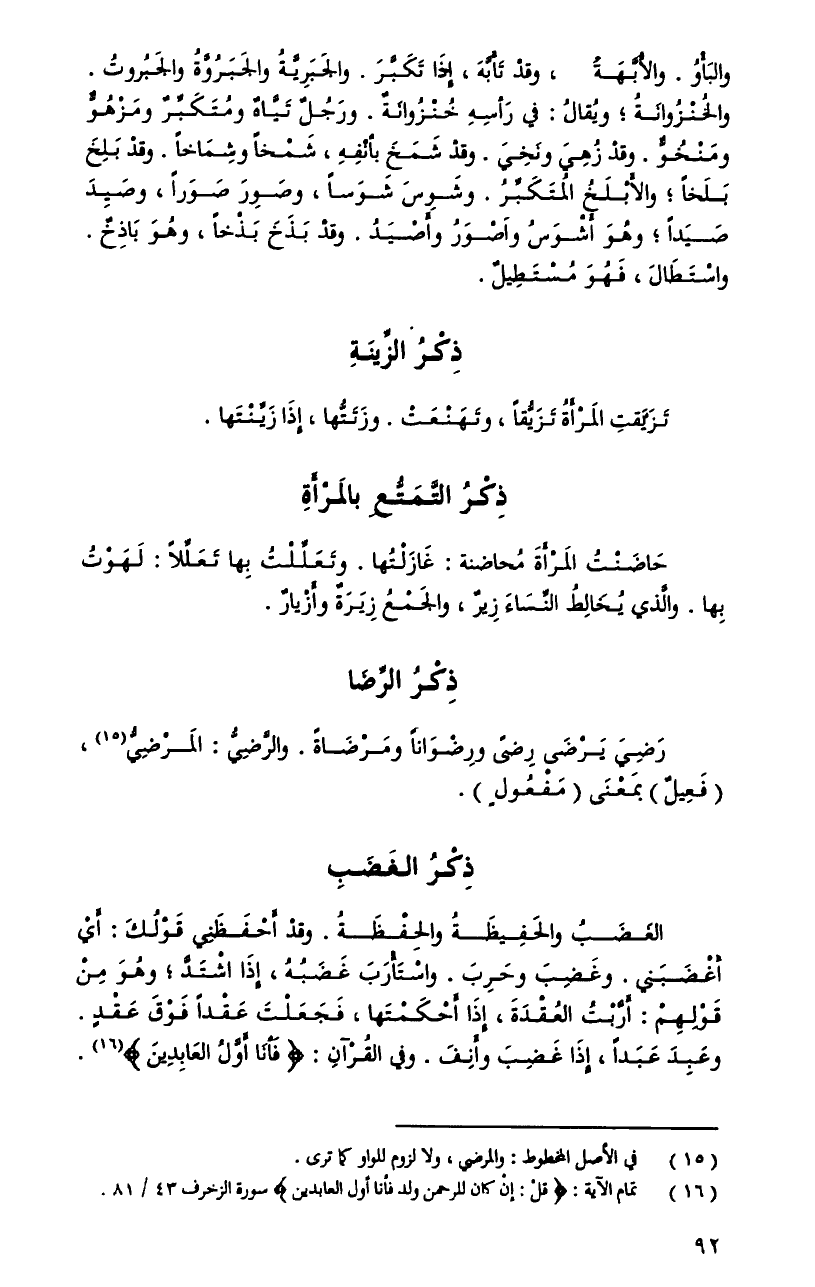 والبَأْوُ . والأُبَّهَةُ ، وقدْ تَأَبَّهَ ، إِذَا تَكَبَّرَ . والجَبَرِيَّةُ والجَبَرُوَّةُ والجَبَروتُ .
والخُنْزُوانَةُ ؛ ويُقالُ : في رَأسِهِ خُنْزُوانَةٌ . ورَجُلٌ تَيَّاهٌ ومُتَكَبِّرٌ ومَزْهُوٌّ
ومَنْخُوٌّ . وقدْ زُهِيَ ونَخِيَ . وقدْ شَمَخَ بأَنْفِهِ ، شَمْخاً وشِمَاخاً . وقدْ بَلِخَ
بَلَخاً ؛ والأَبْلَخُ المُتَكَبِّرُ . وشَوِسَ شَوَساً ، وصَوِرَ صَوَراً ، وصَيِدَ
صَيَداً ؛ وهُوَ أَشْوَسُ وأَصْوَرُ وأَصْيَدُ . وقدْ بَذَخَ بَذْخاً ، وهُوَ بَاذِخٌ .
واسْتَطَالَ ، فَهُوَ مُسْتَطِيلٌ .
ذِكْرُ الزِّينَةِ
تَزَيَّقتِ المَرْأَةُ تَزَيُّقاً ، وتَهَنْعَتْ . وزَتَتُّها ، إِذَا زَيَّنْتَها .
ذِكْرُ التَّمَتُّعِ بالمَرْأَةِ
حَاضَنْتُ المَرْأَةَ مُحاضنة : غَازَلْتُها . وتَعَلَّلْتُ بِها تَعَلُّلاً : لَهَوْتُ
بِها . والَّذي يُخَالِطُ النِّسَاءَ زِيرٌ ، والجَمْعُ زِيَرَةٌ وأَزْيارٌ .
ذِكْرُ الرِّضَا
رَضِيَ يَرْضَى رِضىً ورِضْوَاناً ومَرْضَاةً . والرَّضِيُّ : المَرْضِيُّ(١٥) ،
( فَعِيلٌ ) بمَعْنَى ( مَفْعُولٍ ) .
ذِكْرُ الغَضَبِ
الغَضَبُ والحَفِيظَةُ والحِفْظَةُ . وقدْ أَحْفَظَنِي قَوْلُكَ : أَيْ
أَغْضَبَني . وغَضِبَ وحَرِبَ . واسْتَأْرَبَ غَضَبُهُ ، إِذَا اشْتَدَّ ؛ وهُوَ مِنْ
قَوْلِهِمْ : أَرَّبْتُ العُقْدَةَ ، إِذَا أَحْكَمْتَها ، فَجَعَلْتَ عَقْداً فَوْقَ عَقْدٍ .
وعَبِدَ عَبَداً ، إِذَا غَضِبَ وأَنِفَ . وفي القُرْآنِ : ﴿ فَأَنَا أَوَّلُ العَابِدِينَ ﴾(١٦) .
( ١٥ ) في الأصل المخطوط : والمرضي ، ولا لزوم للواو كما ترى .
( ١٦ ) تمام الآية : ﴿ قلْ : إنْ كان للرحمن ولد فأنا أول العابدين ﴾ سورة الزخرف ٤٣ / ٨١ .
٩٢